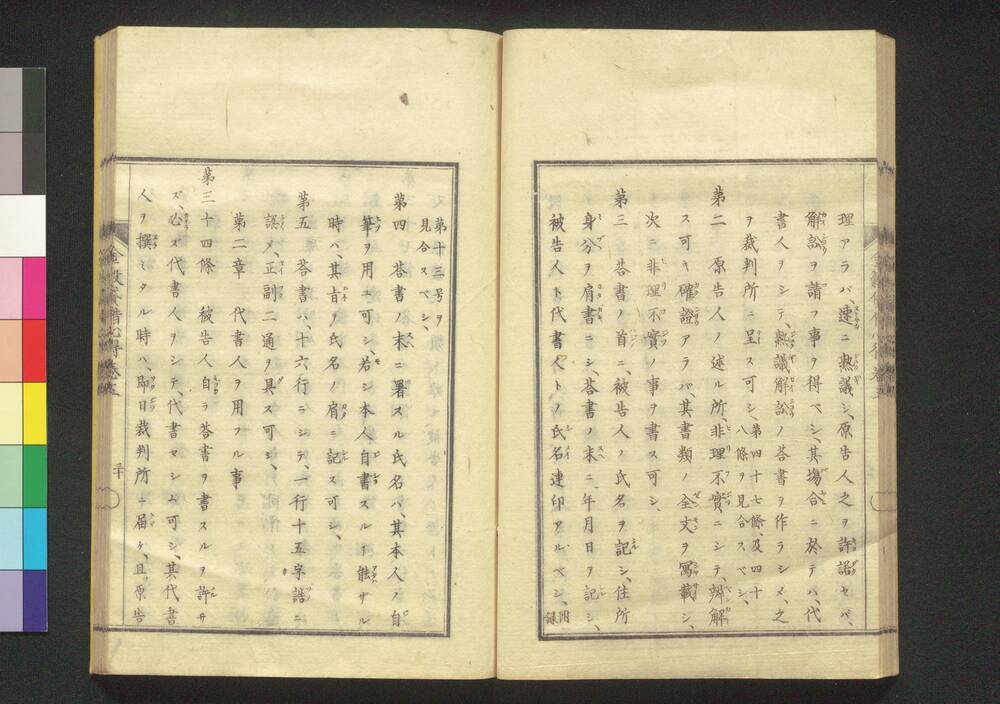 理アラバ、速ニ熟議シ、原告人之ヲ許諾セバ、
解訟ヲ請フ事ヲ得ベシ、其塲合ニ於テハ、代
書人ヲシテ、熟議解訟ノ荅書ヲ作ラシメ、之
ヲ裁判所ニ呈ス可シ、第四十七條、及四十
八條ヲ見合スベシ、
第二 原告人ノ述ル所、非理不實ニシテ、辨解
ス可キ確證アラバ、其書類ノ全文ヲ寫載シ、
次ニ非理不實ノ事ヲ書ス可シ、
第三 荅書ノ首ニ、被告人ノ氏名ヲ記シ、住所
身分ヲ肩書ニシ、荅書ノ末ニ、年月日ヲ記シ、
被告人ト代書人トノ氏名連印アルベシ、附録
第十三号ヲ
見合スベシ、
第四 荅書ノ末ニ署スル氏名ハ、其本人ノ自
筆ヲ用ユ可シ、若シ本人自書スルヿ能ハザル
時ハ、其旨ヲ氏名ノ肩ニ記ス可シ、
第五 荅書ハ、十六行ニシテ、一行十五字詰ニ
認メ、正副二通ヲ具ス可シ、
第二章 代書人ヲ用フル事
第三十四條 被告人自ラ荅書ヲ書スルヲ許サ
ズ、必ズ代書人ヲシテ、代書セシム可シ、其代書
人ヲ撰ミタル時ハ、即日裁判所ニ届ケ、且、原告